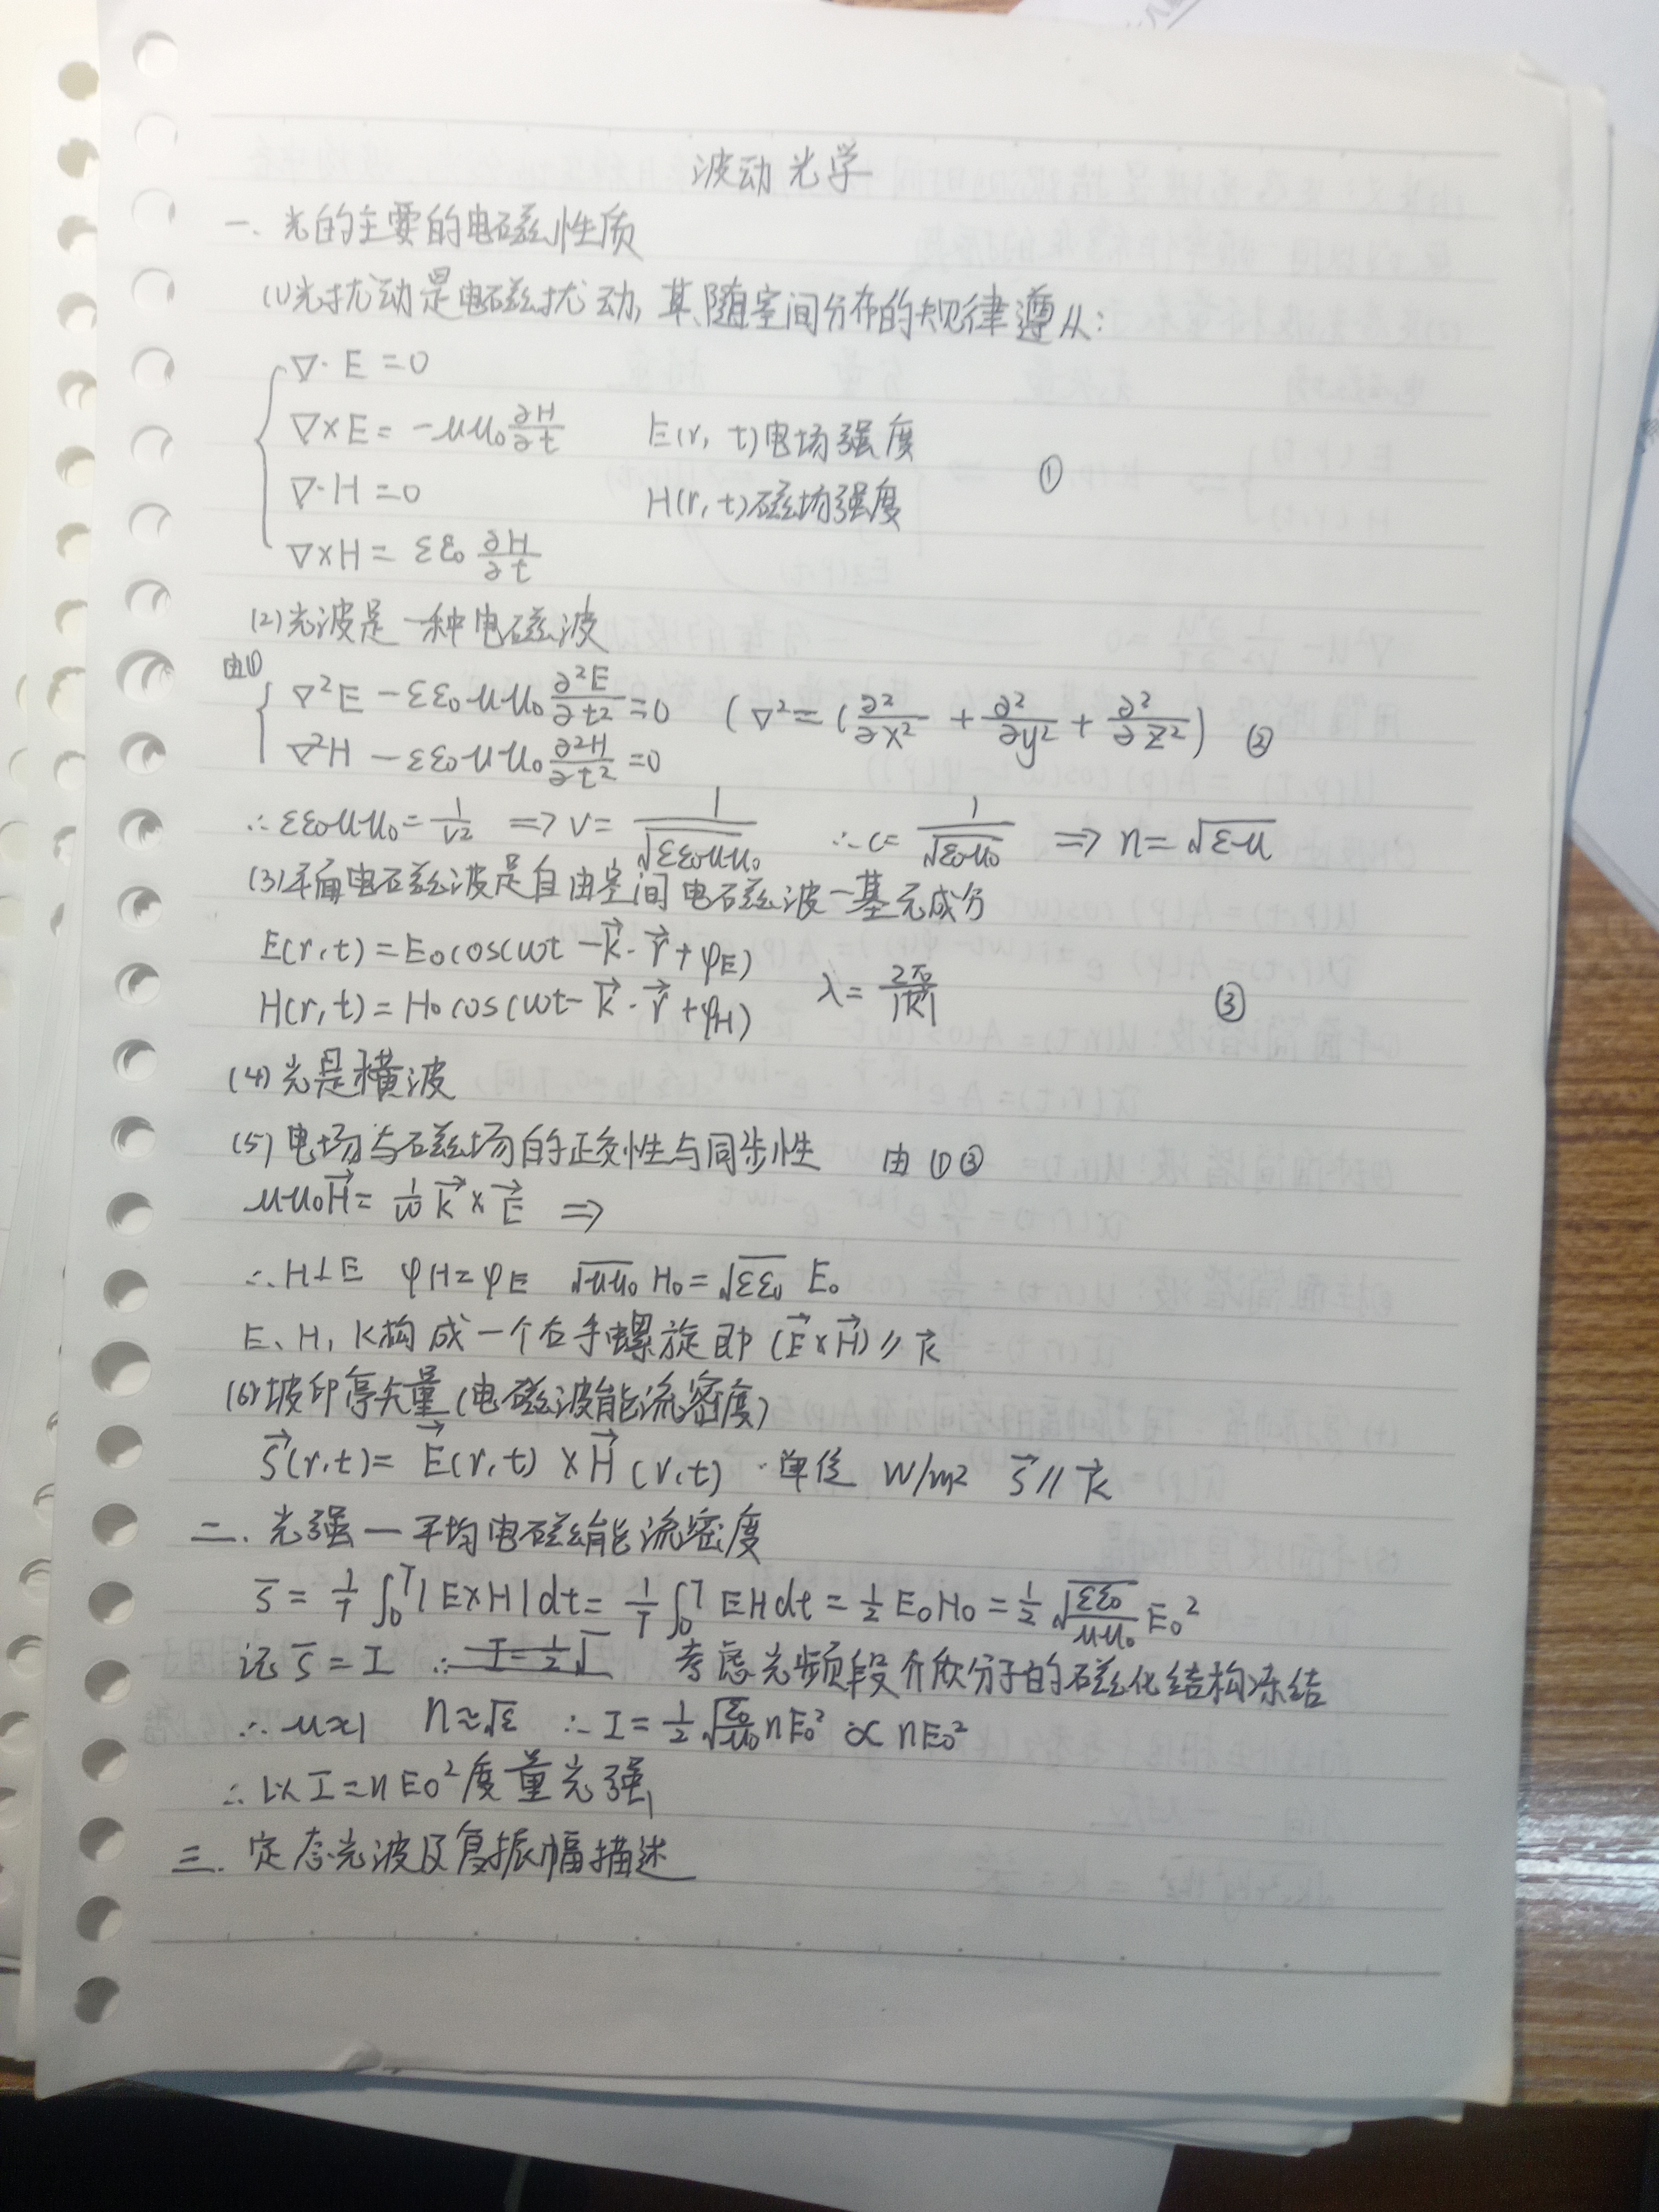 波动光学
一. 光的主要的电磁性质
(1)光扰动是电磁扰动, 其随空间分布的规律遵从:
∇· E = 0
∇×E = -μμ₀ ∂H/∂t   E(r, t)电场强度
∇·H = 0   H(r, t)磁场强度   ①
∇×H = εε₀ ∂H/∂t
(2)光波是一种电磁波
由①
∇²E - εε₀μμ₀ ∂²E/∂t² = 0   (∇² = (∂²/∂x² + ∂²/∂y² + ∂²/∂z²)   ②
∇²H - εε₀μμ₀ ∂²H/∂t² = 0
∴ εε₀μμ₀ = 1/v² ⇒ v = 1/√(εε₀μμ₀)   ∴ c = 1/√(ε₀μ₀) ⇒ n = √(εμ)
(3)平面电磁波是自由空间电磁波一基元成分
E(r,t) = E₀cos(ωt - k⃗· r⃗ + φE)
H(r,t) = H₀cos(ωt - k⃗· r⃗ + φH)   λ = 2π/|k⃗|   ③
(4) 光是横波
(5) 电场与磁场的正交性与同步性   由①③
μμ₀H⃗ = 1/ω k⃗ × E⃗ ⇒
∴ H⊥E   φH = φE   √(μμ₀) H₀ = √(εε₀) E₀
E、H、K构成一个右手螺旋 即 (E⃗×H⃗) // k⃗
(6)坡印亭矢量(电磁波能流密度)
S⃗(r,t) = E⃗(r,t) × H⃗(r,t) . 单位 W/m²   S⃗ // k⃗
二. 光强一平均电磁能流密度
S̄ = 1/T ∫₀ᵀ |E×H|dt = 1/T ∫₀ᵀ EHdt = ½ E₀H₀ = ½ √(εε₀/μμ₀) E₀²
记 S̄ = I   ∴ I = ½√   考虑光频段介质分子的磁化结构冻结
∴ μ≈1   n≈√ε   ∴ I = ½ √(ε₀/μ₀) nE₀² ∝ nE₀²
∴ 以 I = nE₀² 度量光强
三. 定态光波及复振幅描述